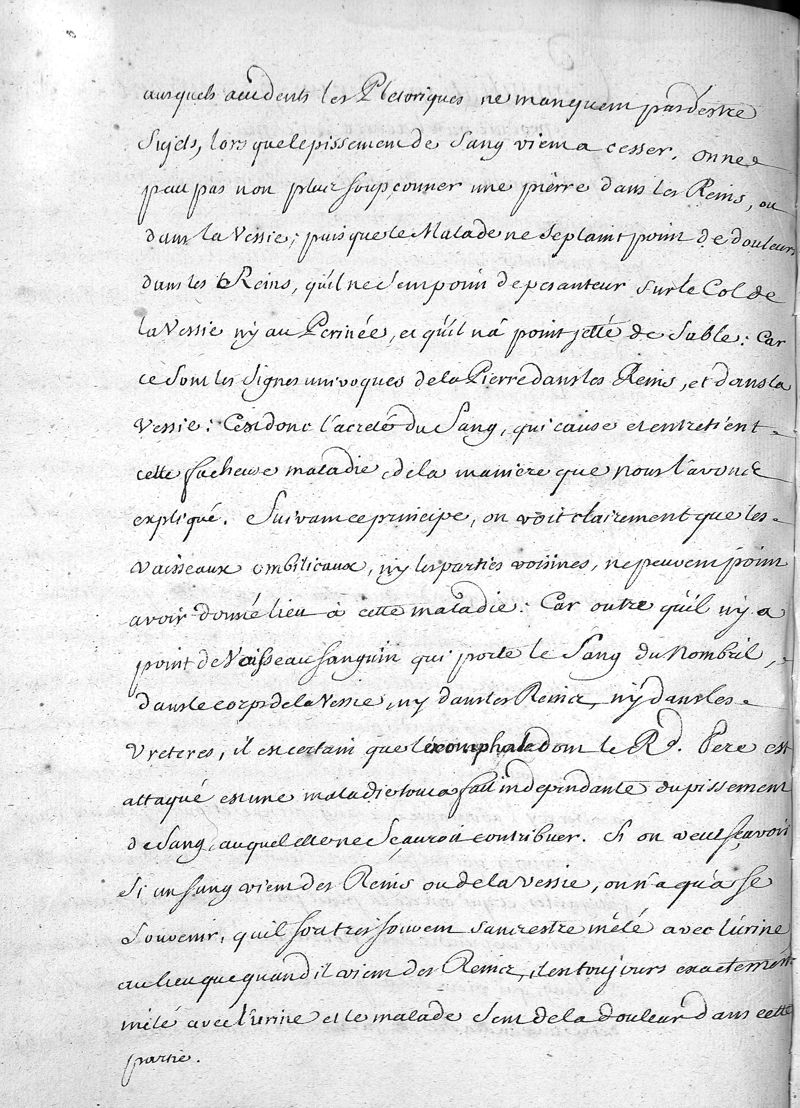 ausquels accidents les Pletoriques ne manquent pas d'estre
Sujets, lorsque le pissement de Sang vient a cesser. on ne
peau pas non plus soupçonner une pierre dans les Reins, ou
dans la Vessie; puisque le Malade ne se plaint point de douleurs
dans les Reins, qu'il ne sent point de pesanteur sur le Col de
la Vessie ny au Perinée, et qu'il n'a point jetté de Sable: Car
ce sont les signes univoques de la Pierre dans les Reins, et dans la
Vessie: C'est donc l'acreté du Sang, qui cause et entretient
cette facheuse maladie, de la maniere que nous l'avons
expliqué. Suivant ce principe, on voit clairement que les
Vaisseaux ombilicaux, ny les parties voisines, ne peuvent point
avoir donné lieu à cette maladie: Car outre qu'il n'y a
point de Vaisseau sanguin qui porte le Sang du Nombril,
dans le corps de la Vessie, ny dans les Reins, ny dans les
Ureteres, il est certain que l'exomphale dont le Rd. Pere est
attaqué est une maladie tout a fait independante du pissement
de Sang, auquel elle ne Sçauroit contribuer. Si on veut sçavoir
Si un sang vient des Reins ou de la Vessie, on n'a qu'a se
Souvenir, qu'il sort tres souvent sans estre mêlé avec l'urine
au lieu que quand il vient des Reins, il est toujours exactement
mêlé avec l'urine et le malade sent de la douleur dans cette
partie.